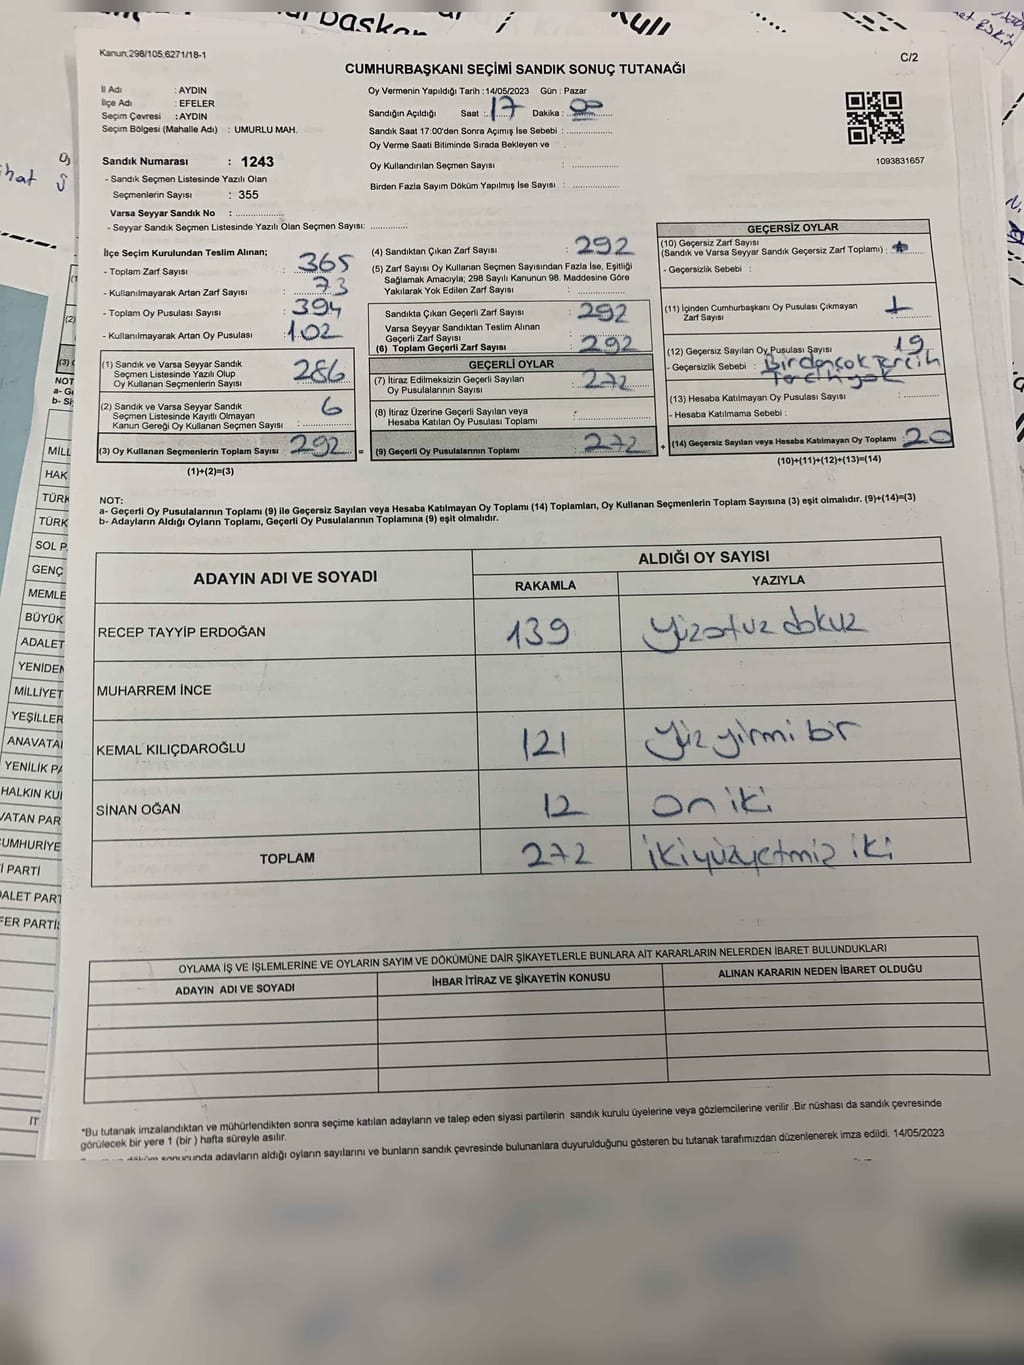 Kanun;298/105,6271/18-1
C/2
CUMHURBAŞKANI SEÇİMİ SANDIK SONUÇ TUTANAĞI
İl Adı : AYDIN
İlçe Adı : EFELER
Seçim Çevresi : AYDIN
Seçim Bölgesi (Mahalle Adı) : UMURLU MAH.
Oy Vermenin Yapıldığı Tarih :14/05/2023 Gün : Pazar
Sandığın Açıldığı Saat : 17 Dakika : 00
Sandık Saat 17:00'den Sonra Açımış İse Sebebi :
Oy Verme Saati Bitiminde Sırada Bekleyen ve
Oy Kullandırılan Seçmen Sayısı :
Birden Fazla Sayım Döküm Yapılmış İse Sayısı :
1093831657
Sandık Numarası : 1243
- Sandık Seçmen Listesinde Yazılı Olan
Seçmenlerin Sayısı : 355
Varsa Seyyar Sandık No :
- Seyyar Sandık Seçmen Listesinde Yazılı Olan Seçmen Sayısı:
İlçe Seçim Kurulundan Teslim Alınan;
- Toplam Zarf Sayısı : 365
- Kullanılmayarak Artan Zarf Sayısı : 73
- Toplam Oy Pusulası Sayısı : 394
- Kullanılmayarak Artan Oy Pusulası : 102
(1) Sandık ve Varsa Seyyar Sandık
Seçmen Listesinde Yazılı Olup
Oy Kullanan Seçmenlerin Sayısı : 286
(2) Sandık ve Varsa Seyyar Sandık
Seçmen Listesinde Kayıtlı Olmayan
Kanun Gereği Oy Kullanan Seçmen Sayısı : 6
(3) Oy Kullanan Seçmenlerin Toplam Sayısı : 292 =
(1)+(2)=(3)
(4) Sandıktan Çıkan Zarf Sayısı : 292
(5) Zarf Sayısı Oy Kullanan Seçmen Sayısından Fazla İse, Eşitliği
Sağlamak Amacıyla; 298 Sayılı Kanunun 98. Maddesine Göre
Yakılarak Yok Edilen Zarf Sayısı :
Sandıkta Çıkan Geçerli Zarf Sayısı : 292
Varsa Seyyar Sandıktan Teslim Alınan
Geçerli Zarf Sayısı :
(6) Toplam Geçerli Zarf Sayısı : 292
GEÇERLİ OYLAR
(7) İtiraz Edilmeksizin Geçerli Sayılan
Oy Pusulalarının Sayısı : 272
(8) İtiraz Üzerine Geçerli Sayılan veya
Hesaba Katılan Oy Pusulası Toplamı :
(9) Geçerli Oy Pusulalarının Toplamı : 272 +
GEÇERSİZ OYLAR
(10) Geçersiz Zarf Sayısı
(Sandık ve Varsa Seyyar Sandık Geçersiz Zarf Toplamı) :
- Geçersizlik Sebebi :
(11) İçinden Cumhurbaşkanı Oy Pusulası Çıkmayan
Zarf Sayısı : 1
(12) Geçersiz Sayılan Oy Pusulası Sayısı : 19
- Geçersizlik Sebebi : Birden çok tercih
Tercih yok
(13) Hesaba Katılmayan Oy Pusulası Sayısı :
- Hesaba Katılmama Sebebi :
(14) Geçersiz Sayılan veya Hesaba Katılmayan Oy Toplamı : 20
(10)+(11)+(12)+(13)=(14)
NOT:
a- Geçerli Oy Pusulalarının Toplamı (9) ile Geçersiz Sayılan veya Hesaba Katılmayan Oy Toplamı (14) Toplamları, Oy Kullanan Seçmenlerin Toplam Sayısına (3) eşit olmalıdır. (9)+(14)=(3)
b- Adayların Aldığı Oyların Toplamı, Geçerli Oy Pusulalarının Toplamına (9) eşit olmalıdır.
ADAYIN ADI VE SOYADI
ALDIĞI OY SAYISI
RAKAMLA YAZIYLA
RECEP TAYYİP ERDOĞAN 139 Yüzotuz dokuz
MUHARREM İNCE
KEMAL KILIÇDAROĞLU 121 Yüz yirmi bir
SİNAN OĞAN 12 on iki
TOPLAM 272 ikiyüzyetmiş iki
OYLAMA İŞ VE İŞLEMLERİNE VE OYLARIN SAYIM VE DÖKÜMÜNE DAİR ŞİKAYETLERLE BUNLARA AİT KARARLARIN NELERDEN İBARET BULUNDUKLARI
ADAYIN ADI VE SOYADI İHBAR İTİRAZ VE ŞİKAYETİN KONUSU ALINAN KARARIN NEDEN İBARET OLDUĞU
*Bu tutanak imzalandıktan ve mühürlendikten sonra seçime katılan adayların ve talep eden siyasi partilerin sandık kurulu üyelerine veya gözlemcilerine verilir .Bir nüshası da sandık çevresinde
görülecek bir yere 1 (bir ) hafta süreyle asılır.
sonucunda adayların aldığı oyların sayılarını ve bunların sandık çevresinde bulunanlara duyurulduğunu gösteren bu tutanak tarafımızdan düzenlenerek imza edildi. 14/05/2023
(2)
(3)
NOT
MİLL
HAK
TÜRK
TÜRK
SOL P
GENÇ
MEMLE
BÜYÜK
ADALET
YENİDEN
MİLLİYET
YEŞİLLER
ANAVATA
YENİLİK PA
HALKIN KU
VATAN PAR
CUMHURİYE
İ PARTİ
ALET PART
FER PARTİ
İT